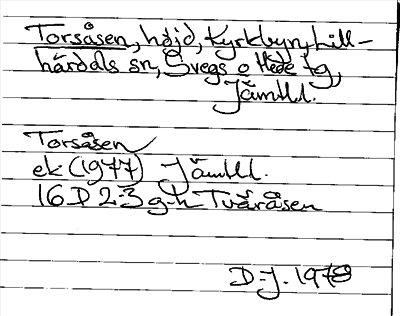 Torsåsen, höjd, Kyrkbyn, Lill-
härdals sn, Svegs o Hede tg,
Jämtl.
Torsåsen
ek (1977) Jämtl.
16D 2-3 g-h Tväråsen
D-J. 1978